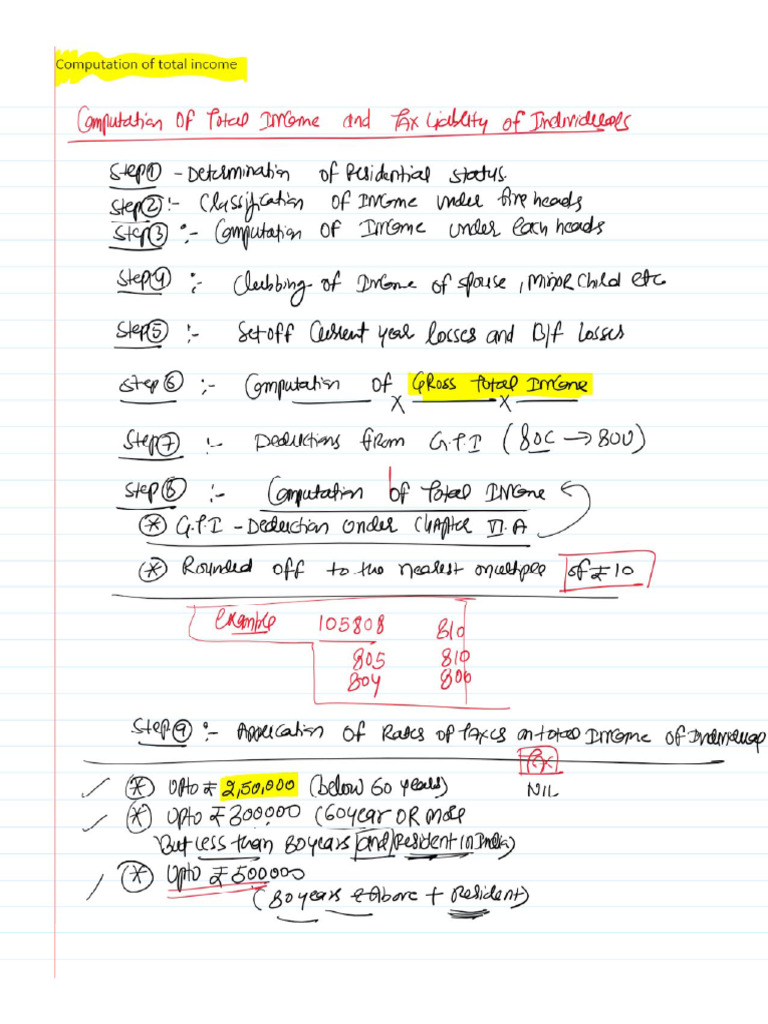 Computation of total income
Computation Of Total Income and Tax Liablity of Individuals
Step① - Determination of Residential Status.
Step② :- Classification of Income under five heads
Step③ :- Computation of Income under each heads
Step④ :- Clubbing of Income of spouse, Minor child etc
Step⑤ :- Set off Current year losses and B/f Losses
Step⑥ :- Computation of Gross Total Income
X X
Step⑦ :- Deductions from G.T.I (80C → 80U)
Step⑧ :- Computation of Total Income
* G.T.I - Deduction under Chapter VI.A
* Rounded off to the nearest multiple of ₹10
Example 105808 810
805 810
804 800
Step⑨ :- Application Of Rates of Taxes on total Income of Individual
Tax
* Upto ₹ 2,50,000 (below 60 years) NIL
* Upto ₹ 300000 (60 year OR more
But less than 80 years and Resident in India)
* Upto ₹ 500000
(80 years & Above + Resident)